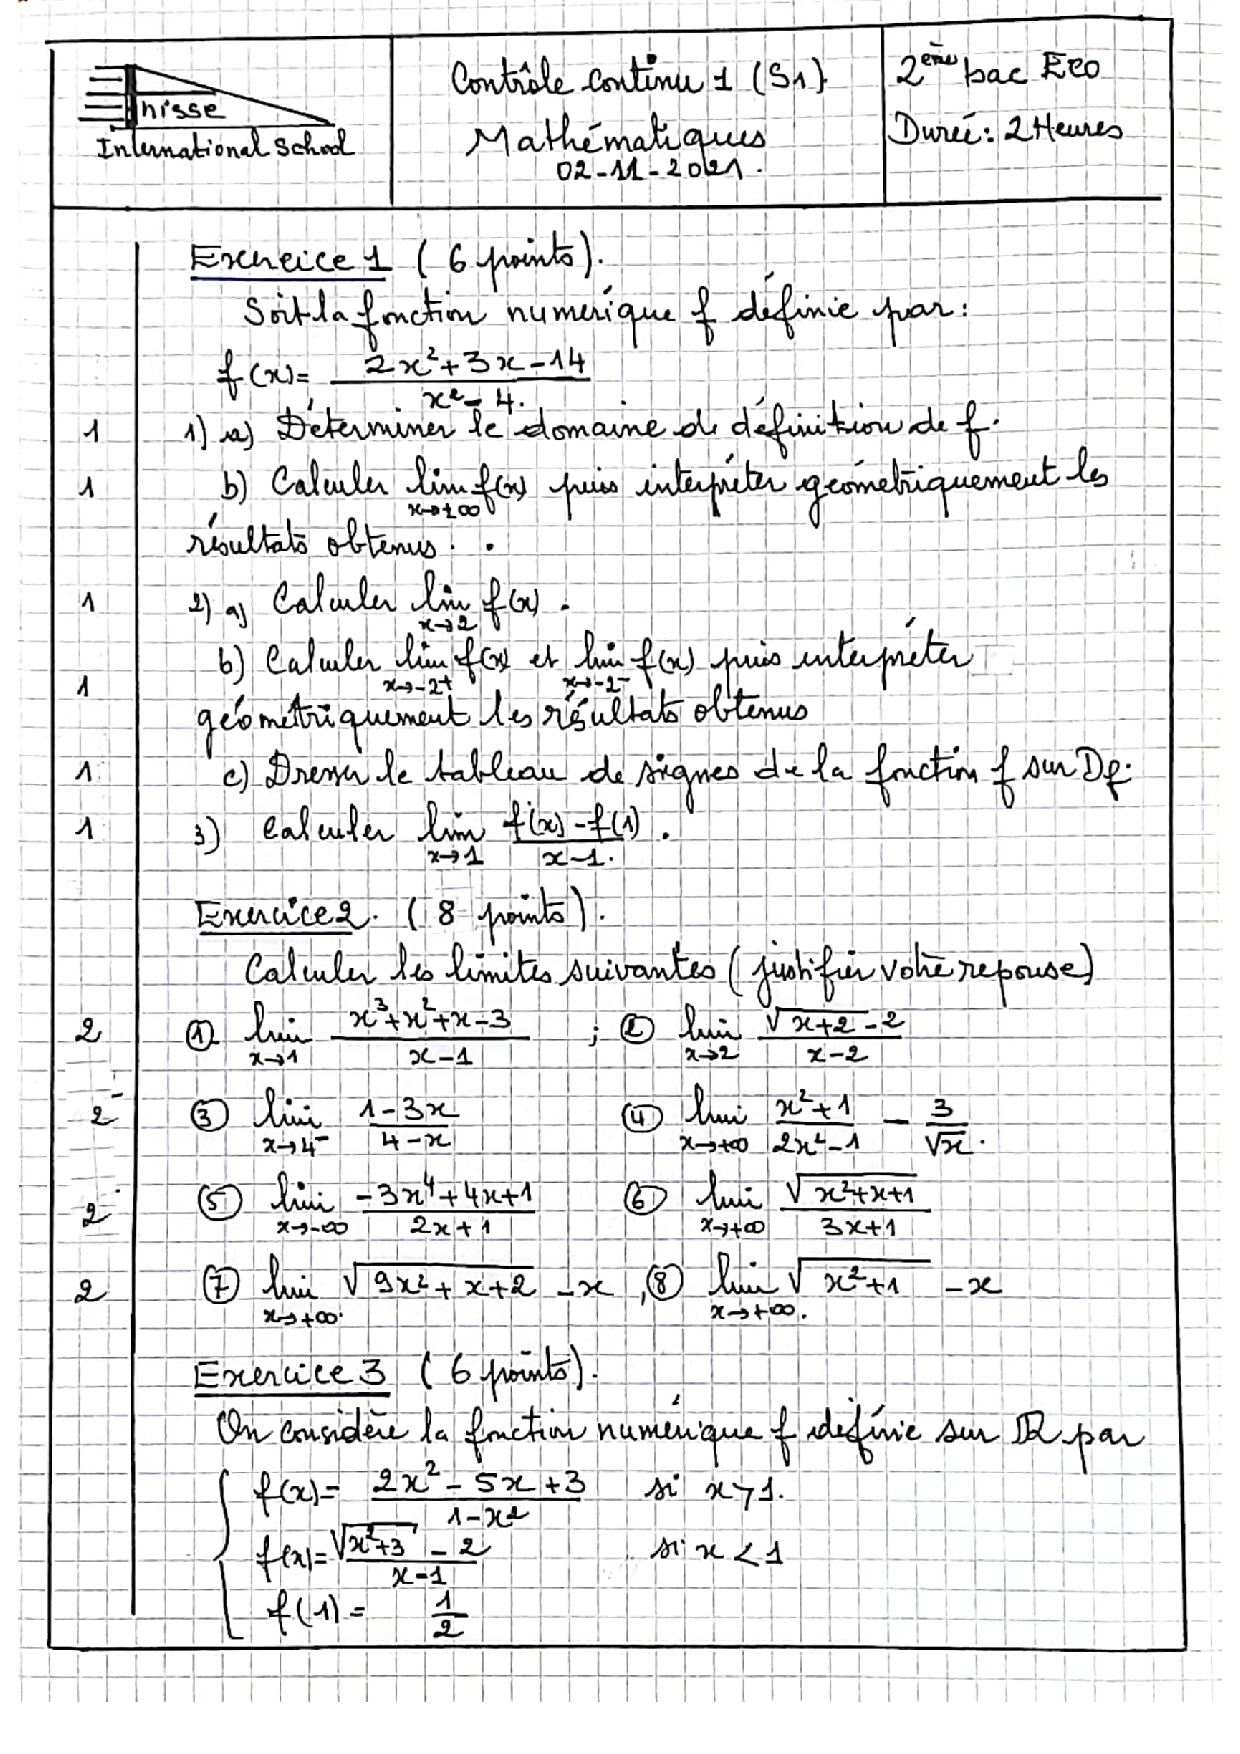 nisse
International School
Contrôle continu 1 (S1)
Mathématiques
02-11-2021.
2ème bac Eco
Dureé: 2 Heures
Exercice 1 ( 6 points).
Soit la fonction numérique f définie par:
f(x)= (2x²+3x-14)/(x²-4).
1 1) a) Déterminer le domaine de définition de f.
1 b) Calculer lim x→±∞ f(x) puis interpréter géométriquement les
résultats obtenus.
1 2) a) Calculer lim x→2 f(x).
b) Calculer lim x→-2⁺ f(x) et lim x→-2⁻ f(x) puis interpréter
1 géométriquement les résultats obtenus
1 c) Dresser le tableau de signes de la fonction f sur Df.
1 3) Calculer lim x→1 (f(x)-f(1))/(x-1).
Exercice 2. ( 8 points).
Calculer les limites suivantes (justifier votre reponse)
2 ① lim x→1 (x³+x²+x-3)/(x-1) ; ② lim x→2 (√(x+2)-2)/(x-2)
2 ③ lim x→4⁻ (1-3x)/(4-x) ④ lim x→+∞ (x²+1)/(2x²-1) - 3/√x.
2 ⑤ lim x→-∞ (-3x⁴+4x+1)/(2x+1) ⑥ lim x→+∞ √(x²+x+1)/(3x+1)
2 ⑦ lim x→+∞ √(9x²+x+2) -x , ⑧ lim x→+∞ √(x²+1) -x
Exercice 3 ( 6 points).
On considère la fonction numérique f définie sur ℝ par
f(x)= (2x²-5x+3)/(1-x²) si x>1.
f(x)= (√(x²+3) -2)/(x-1) si x<1
f(1)= 1/2